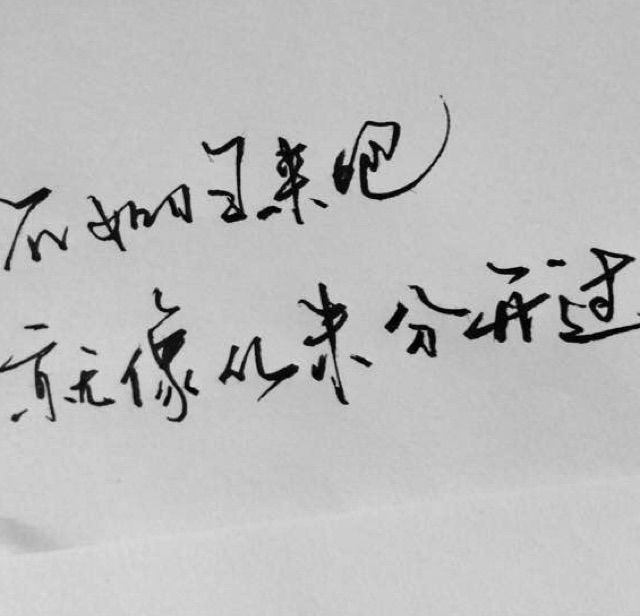 不如回来吧
就像从未分开过